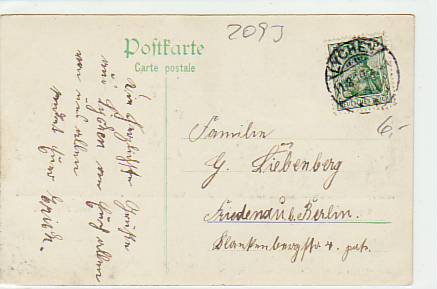 209J
Postkarte
Carte postale
LYCHEN
6,-
Die herzlichsten Grüße
aus Lychen von Euch allen
von uns allen
sendet Euer Erich.
Familie
G. Liebenberg
Friedenau b. Berlin.
Blankenbergstr 4. prt.